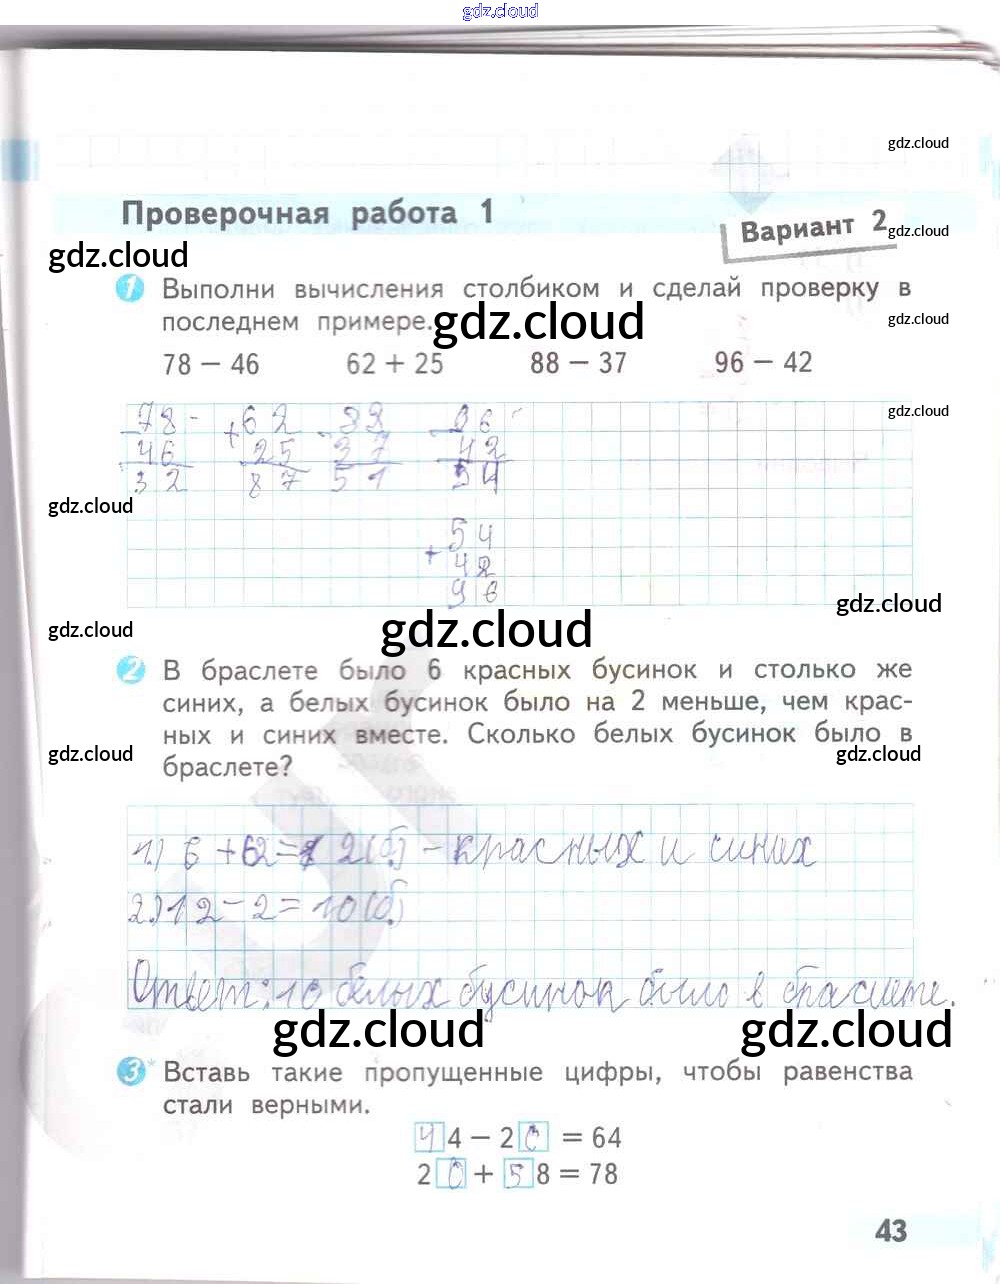 gdz.cloud
gdz.cloud
Проверочная работа 1
Вариант 2
gdz.cloud
gdz.cloud
1 Выполни вычисления столбиком и сделай проверку в
последнем примере.
gdz.cloud
gdz.cloud
78 − 46 62 + 25 88 − 37 96 − 42
gdz.cloud
78 +62 88 96
46 25 37 42
32 87 51 54
gdz.cloud
54
+ 42
96
gdz.cloud
gdz.cloud
gdz.cloud
2 В браслете было 6 красных бусинок и столько же
синих, а белых бусинок было на 2 меньше, чем крас-
ных и синих вместе. Сколько белых бусинок было в
браслете?
gdz.cloud
gdz.cloud
1.) 6 + 62 = 12 (б) - красных и синих
2.) 12 - 2 = 10 (б)
Ответ: 10 белых бусинок было в браслете.
gdz.cloud
gdz.cloud
3* Вставь такие пропущенные цифры, чтобы равенства
стали верными.
4 4 − 2 0 = 64
2 0 + 5 8 = 78
43